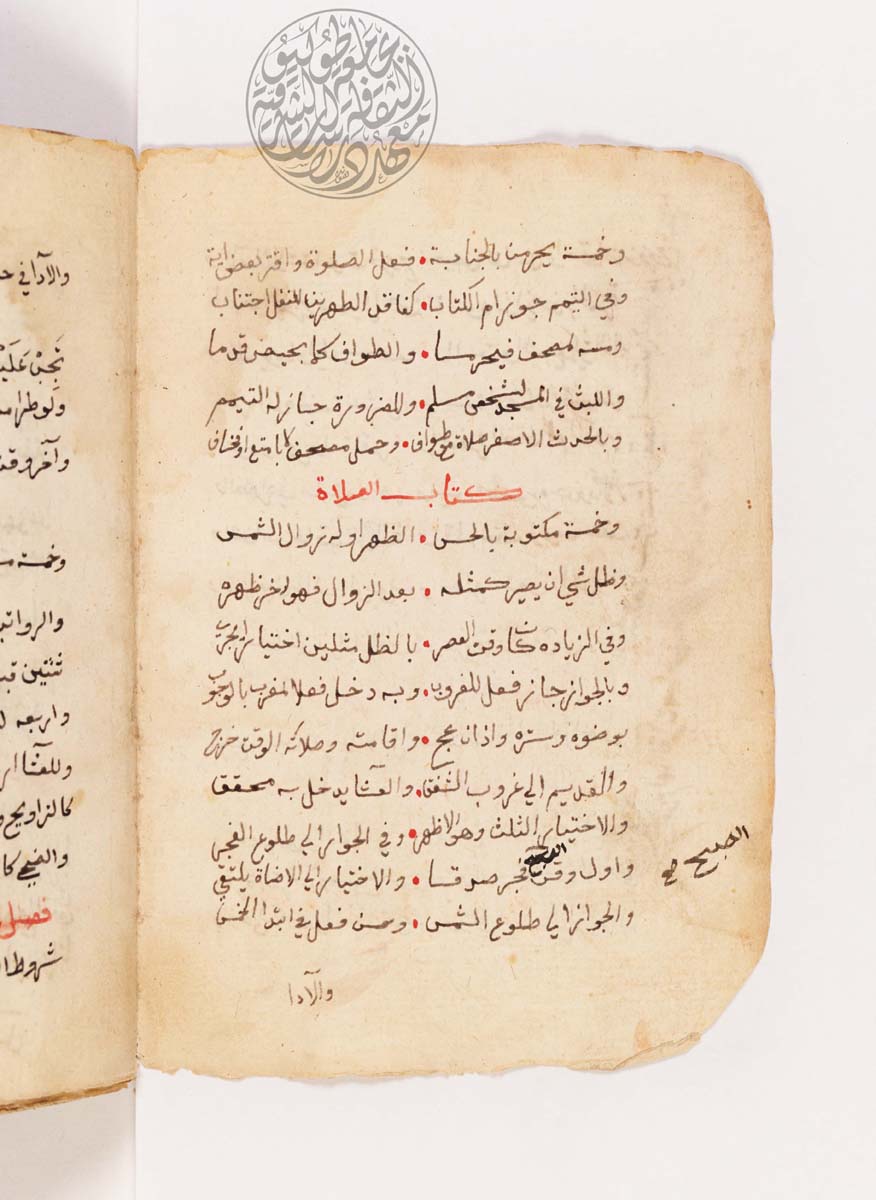 وخمسة يحرمن بالجنابة • فعل الصلوة واقترا بعض اية
وفي التيمم جوز ام الكتاب • كفاقد الطهرين للنفل اجتناب
ومسه لمصحف فيحرمسا • والطواف كلما بحيض قد ما
واللبث في المسجد لشخص مسلم • وللضرورة جايز له التيمم
وبالحدث الاصغر صلاة مع طواف • وحمل مصحف لا بامتع اذ يخاف
كتاب الصلاة
وخمسة مكتوبة بالحس • الظهر اوله زوال الشمس
وظل شي ان يصير كمثله • بعد الزوال فهو اخر ظهره
وفي الزياده كان وقت العصر • بالظل مثلين اختيار
وبالجواز جايز فعل للغروب • وبه دخل فعلا لمغرب بالوجوب
بوضوه وستره واذان عجج • واقامته وصلاته الوقت خرج
والقديم الي غروب الشفق • والعشا يدخل به محقق
والاختيار الثلث وهو الاظهر • وفي الجواز الي طلوع الفجر
واول وقت الصبح فجر صدقا • والاختيار الي الاضاة يلتقي
الصبح صح
والجواز الي طلوع الشمس • وسن فعل في ابتدا الخمس
والآدا
والآدا في
تجب علي
ولو طرا
وآخر وقت
وخمسة
والرواتب
ثنتين قبل
واربعه
وللعشا
كالتراويح و
والضحي كا
فصل
شروط